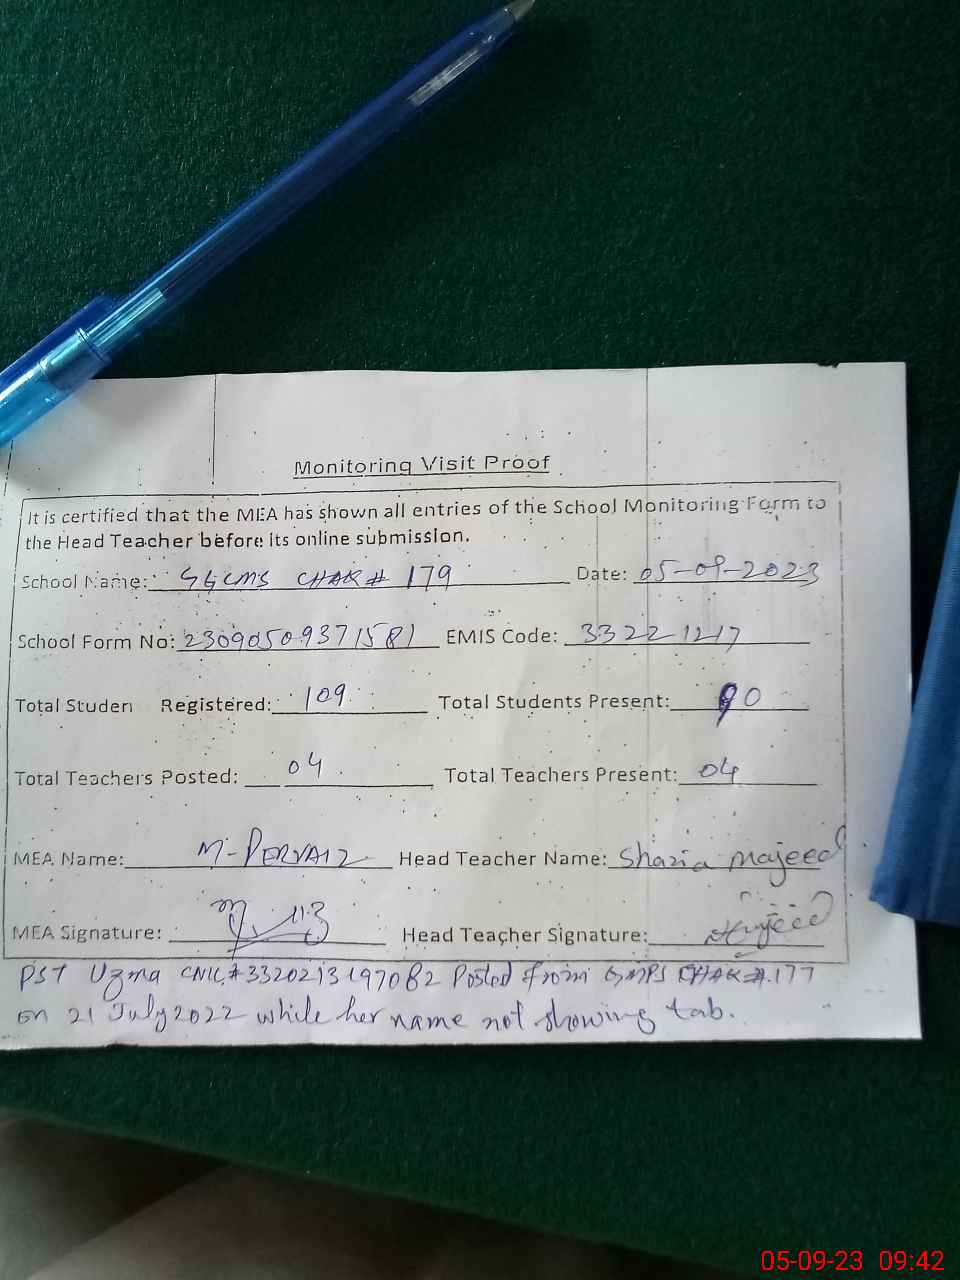 Monitoring Visit Proof
It is certified that the MEA has shown all entries of the School Monitoring Form to
the Head Teacher before its online submission.
School Name: SGCMS CHAK # 179 Date: 05-09-2023
School Form No: 23090509371581 EMIS Code: 33221217
Total Studen Registered: 109 Total Students Present: 90
Total Teachers Posted: 04 Total Teachers Present: 04
MEA Name: M-PERVAIZ Head Teacher Name: Shazia Majeed
MEA Signature: Head Teacher Signature:
PST Uzma CNIC # 3320213197082 Posted from GMPS CHAK #.177
on 21 July 2022 while her name not showing tab.
05-09-23 09:42